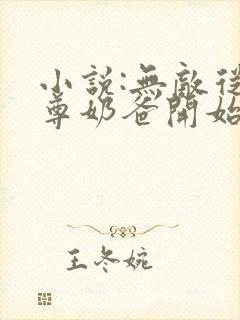 小説:無敵從
尊奶爸開始
王冬婉